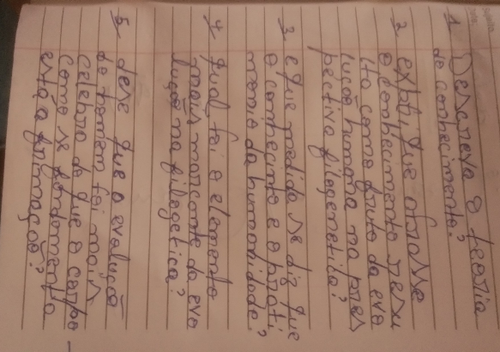 1 Descreva a teoria
do conhecimento?
2 explique a frase
o conhecimento resu
lta como fruto da evo
lução humana na pers
pectiva filogenetica?
3 e que medida se diz que
o conhecimento e o proti
momo da humanidade?
4 qual foi o elemento
mais marcante da evo
lução na filogetica?
5 dese que a evolução
do homem foi mais
celebro do que o corpo
como se fondomenta
está afirmação?